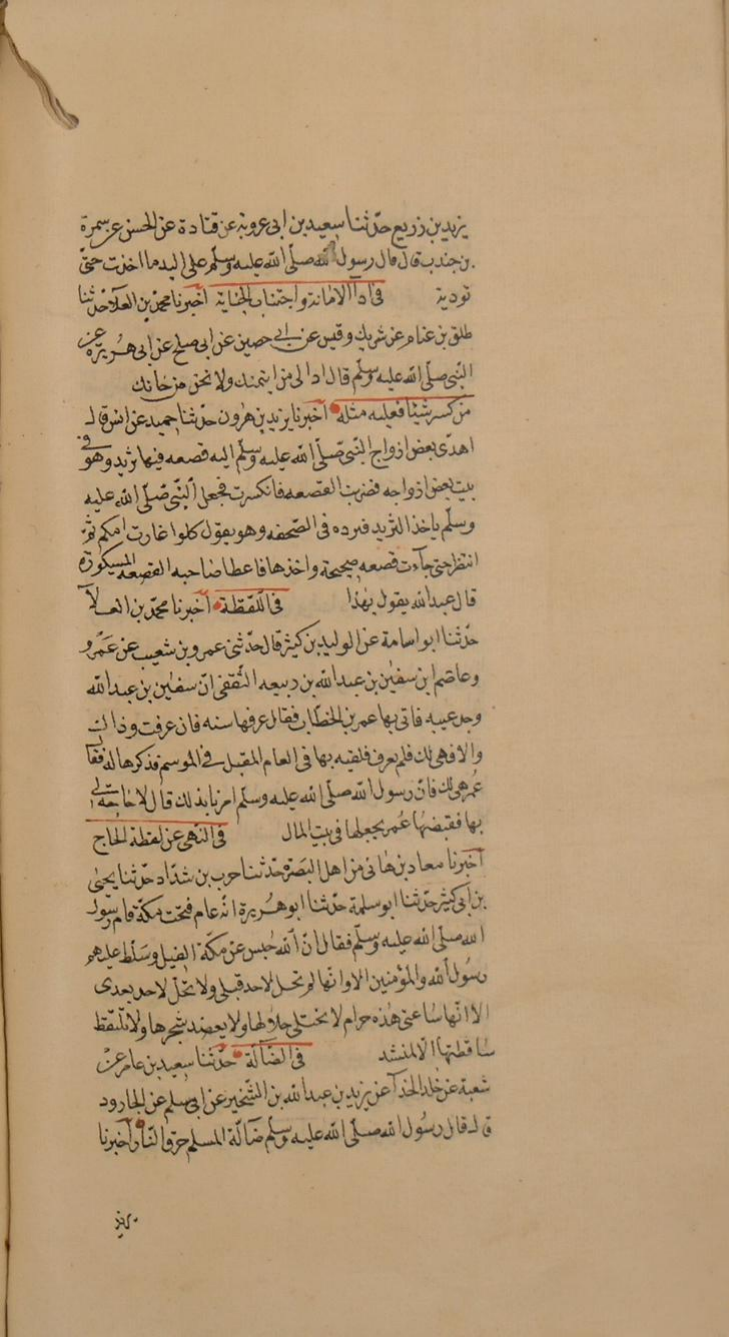 يزيد بن زريع حدّثنا سعيد بن ابى عروبة عن قتادة عن الحسن عن سمرة
بن جندب قال قال رسول الله صلّى الله عليه وسلّم على اليد ما اخذت حتّى
تودية فى ادآ الامانة واجتناب الخيانة أخبرنا محمّد بن العلآ حدّثنا
طلق بن غنام عن شريك وقيس عن ابى حصين عن ابى صلح عن ابى هريرة عن
النّبى صلّى الله عليه وسلّم قال اد الى من ايتمنك ولا تخن من خانك
من كسر شيئا فعليه مثله أخبرنا يزيد بن هرون حدّثنا حميد عن انس قال
اهدى بعض ازواج النّبى صلّى الله عليه وسلّم اليه قصعه فيها ثريد وهو فى
بيت بعض ازواجه فضربت القصعه فانكسرت فجعل النّبى صلّى الله عليه
وسلّم ياخذ الثريد فيرده فى الصّحفه وهو يقول كلوا غارت امكم ثمّ
انتظر حتى جآءت قصعه صحيحة واخذها فاعطا صاحبه القصعه المسكورة
قال عبد الله يقول بهذا فى اللّقطة أخبرنا محمّد بن العلآ
حدّثنا ابو اسامة عن الوليد بن كثير قال حدّثنى عمرو بن شعيب عن عمرو
وعاصم ابن سفين بن عبد الله بن ربيعه الثّقفى انّ سفين بن عبد الله
وجد عيبه فاتى بها عمر بن الخطّاب فقال عرفها سنه فان عرفت وذاك
والا فهى لك فلم يعرف فلقيه بها فى العام المقبل فى الموسم فذكرها له فقال
عمر هى لك فانّ رسول الله صلّى الله عليه وسلّم امرنا بذلك قال لا حاجة لى
بها فقبضها عمر فجعلها فى بيت المال فى النّهى عن لقطة الحاج
أخبرنا معاد بن هانى من اهل البصرة حدّثنا حرب بن شدّاد حدّثنا يحيى
بن ابى كثير حدّثنا ابو سلمة حدّثنا ابو هريرة انّه عام فتحت مكّة قام رسول
الله صلّى الله عليه وسلّم فقال انّ الله حبس عن مكّة الفيل وسلّط عليهم
رسول الله والمؤمنين الا وانّها لم تحل لاحد قبلى ولا تحلّ لاحد بعدى
الا انّها ساعتى هذه حرام لا يختلى خلالها ولا يعضد شجرها ولا تلتقط
ساقطتها الا لمنشد فى الضّآلّة حدّثنا سعيد بن عامر عن
شعبة عن خلد الحذآ عن يزيد بن عبد الله بن الشّخير عن ابى مسلم عن الجارود
قال قال رسول الله صلّى الله عليه وسلّم ضآلّة المسلم حرق النّار أخبرنا